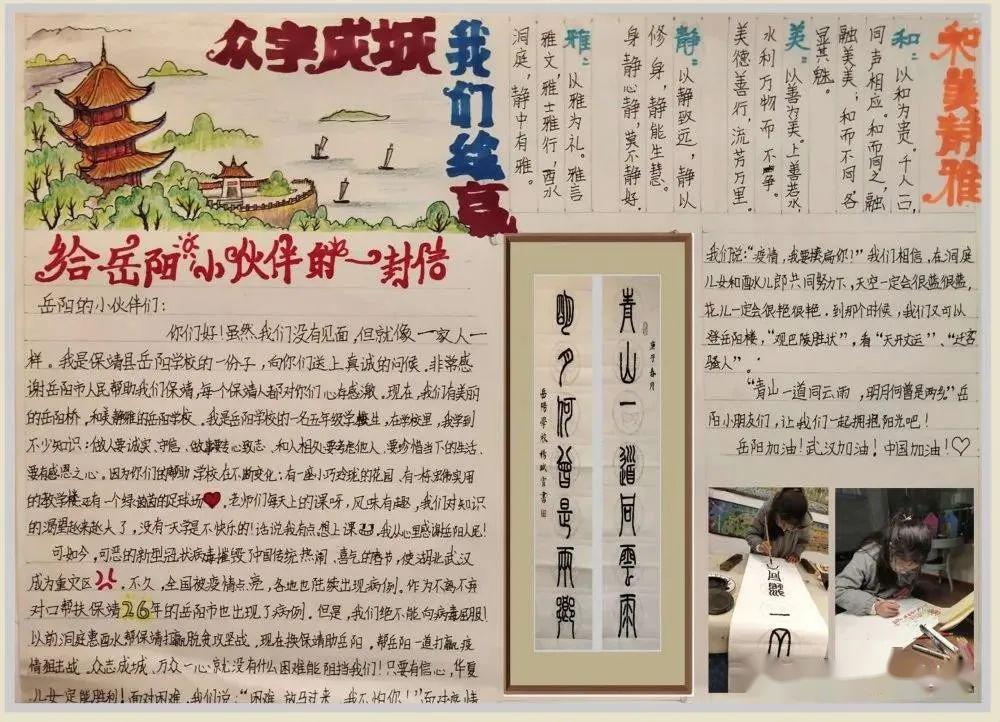 众字成城
我们绘赢
和美静雅
和：以和为贵。千人一口，
同声相应。和而同之，融
融美美；和而不同，各
显其魅。
美：以善为美。上善若水，
水利万物而不争。
美德善行，流芳万里。
静：以静致远，静以
修身，静能生慧。
身静心静，莫不静好。
雅：以雅为礼。雅言
雅文，雅士雅行，酉水
洞庭，静中有雅。
给岳阳小伙伴的一封信
岳阳的小伙伴们：
你们好！虽然我们没有见面，但就像一家人一
样。我是保靖县岳阳学校的一份子，向你们送上真诚的问候。非常感
谢岳阳市人民帮助我们保靖，每个保靖人都对你们心存感激。现在，我们有美丽
的岳阳桥，和美静雅的岳阳学校。我是岳阳学校的一名五年级学生，在学校里，我学到
不少知识：做人要诚实、守信，做事要专心致志，和人相处要考虑他人，要珍惜当下的生活，
要有感恩之心。因为你们的帮助，学校在不断变化：有一座小巧玲珑的花园，有一栋宏伟实用
的教学楼，还有一个绿茵茵的足球场。老师们每天上的课呀，风味有趣，我们对知识
的渴望越来越大了，没有一天学是不快乐的！话说我有点想上课了，我从心里感谢岳阳人民！
可如今，可恶的新型冠状病毒摧毁了中国传统热闹、喜气的春节，使湖北武汉
成为重灾区，不久，全国被疫情点亮，各地也陆续出现病例。作为不离不弃
对口帮扶保靖26年的岳阳市也出现了病例。但是，我们绝不能向病毒屈服！
以前洞庭惠酉水帮保靖打赢脱贫攻坚战，现在换保靖助岳阳，帮岳阳一道打赢疫
情阻击战。众志成城、万众一心就没有什么困难能阻挡我们！只要有信心，华夏
儿女一定能胜利！面对困难，我们说：“困难，放马过来，我不怕你！”面对疫情
我们说：“疫情，我要揍扁你！”我们相信，在洞庭
儿女和酉水儿郎共同努力下，天空一定会很蓝很蓝，
花儿一定会很艳很艳。到那个时候，我们又可以
登岳阳楼，“观巴陵胜状”，看“天开文运”、“迁客
骚人”。
“青山一道同云雨，明月何曾是两乡”岳
阳小朋友们，让我们一起拥抱阳光吧！
岳阳加油！武汉加油！中国加油！
青山一道同雲雨
庚子春月
明月何曾是兩鄉